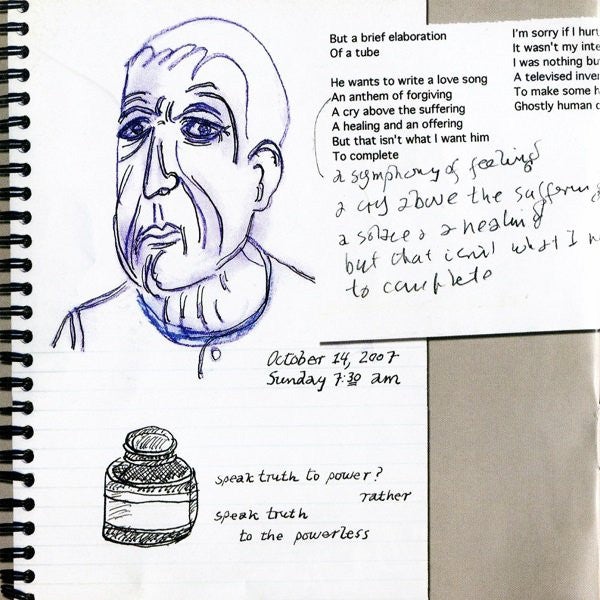 But a brief elaboration
Of a tube
He wants to write a love song
An anthem of forgiving
A cry above the suffering
A healing and an offering
But that isn't what I want him
To complete
I'm sorry if I hurt
It wasn't my inte
I was nothing bu
A televised inve
To make some h
Ghostly human c
a symphony of feeling
a cry above the suffering
a solace a healing
but that isn't what I n
to complete
October 14, 2007
Sunday 7:30 am
speak truth to power?
rather
speak truth
to the powerless